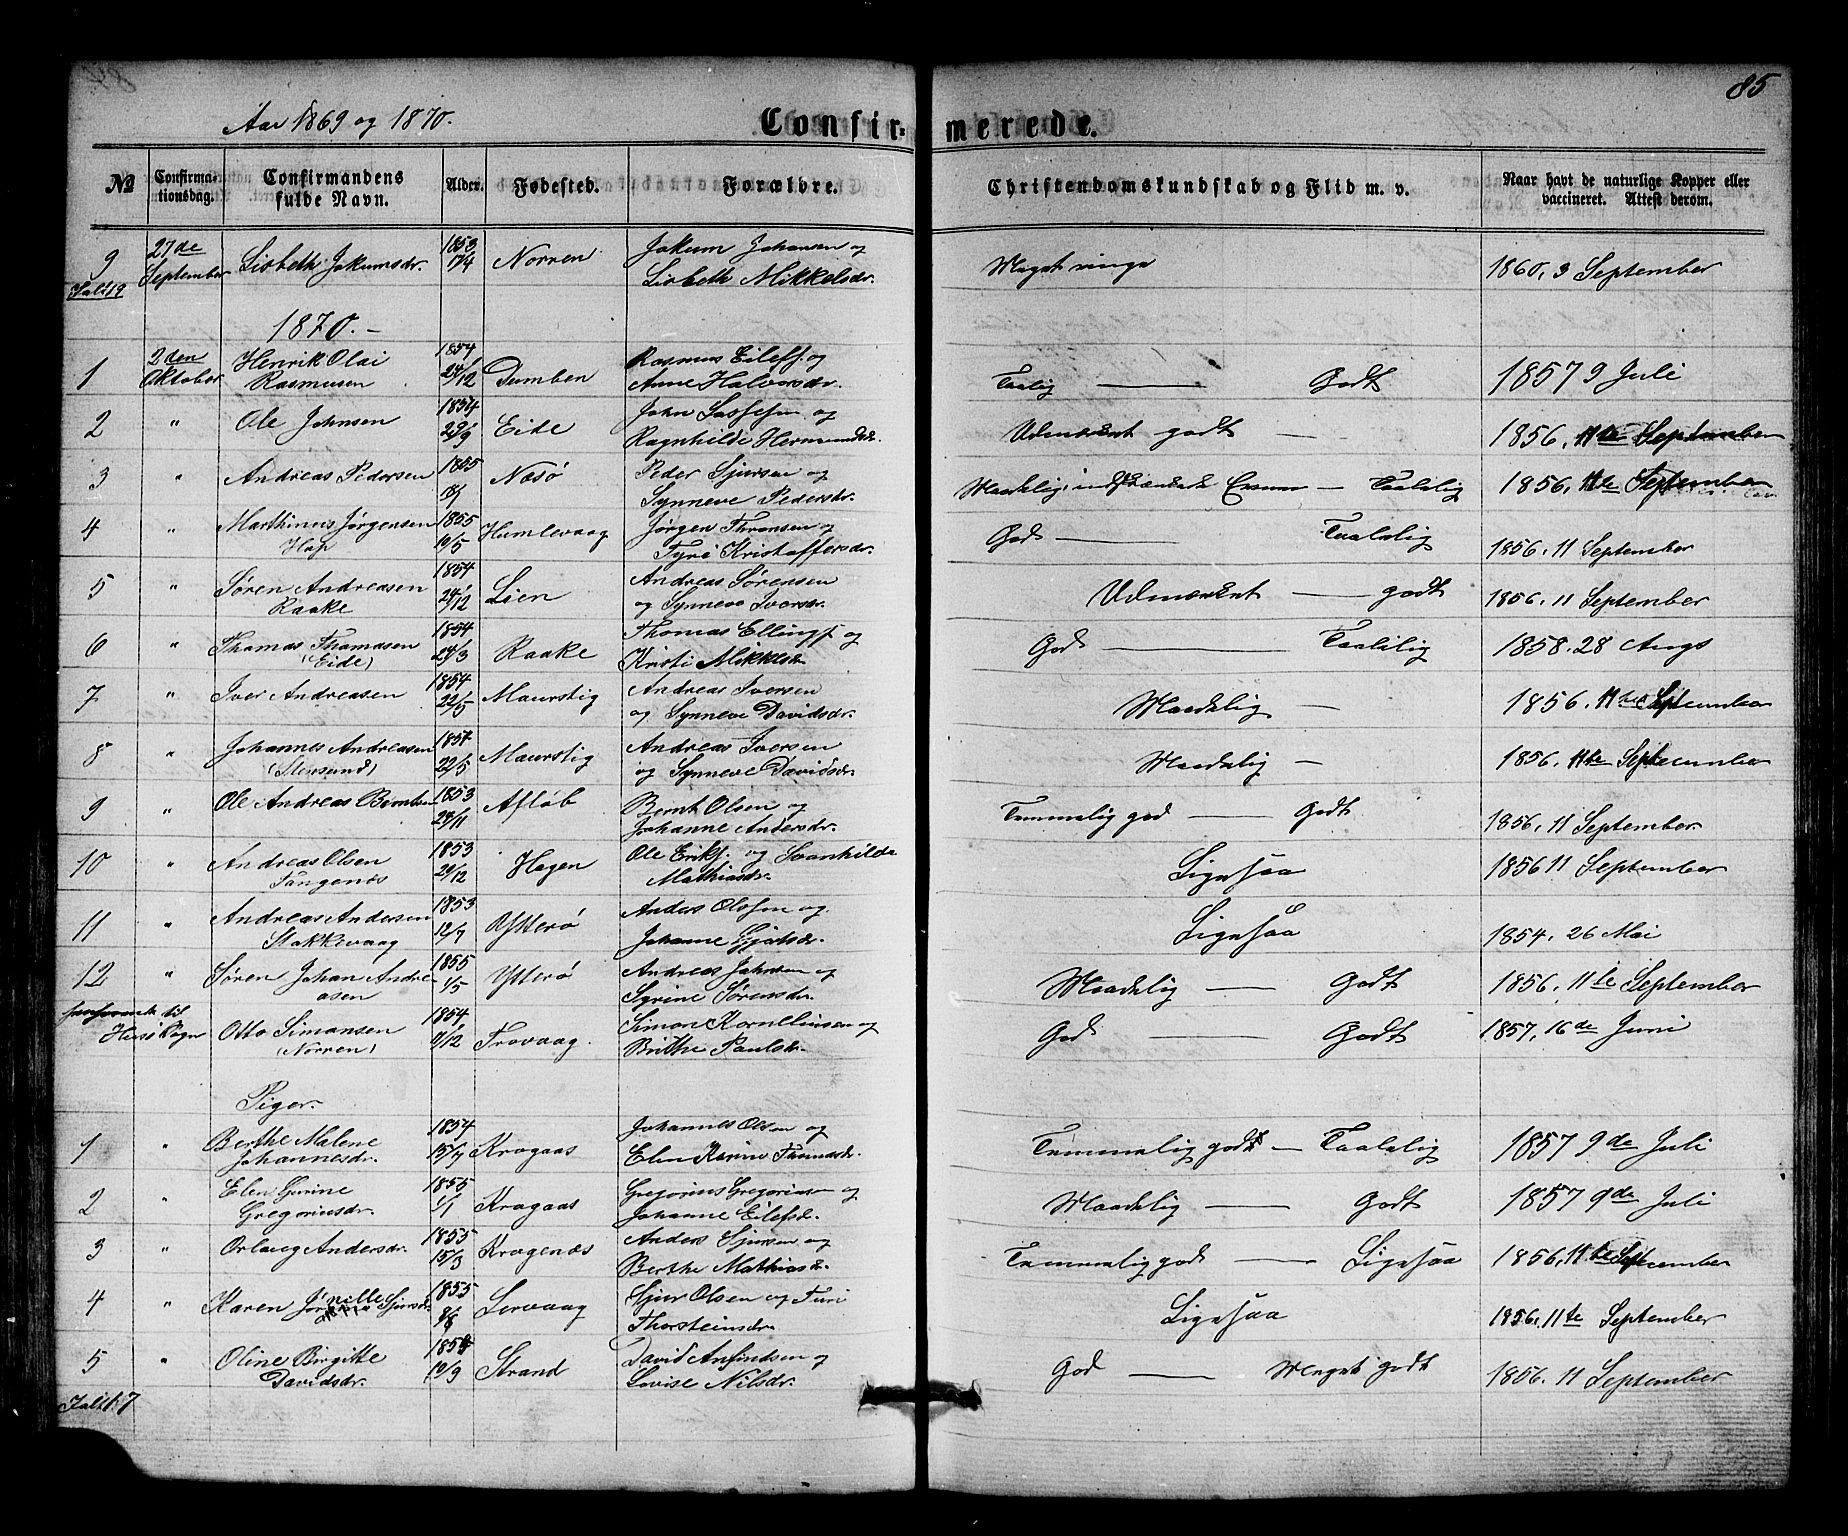 85
Aar 1869 og 1870.
Confirmerede.
No
Confirma-
tionsdag.
Confirmandens
fulde Navn.
Alder.
Fødested.
Forældre.
Christendomskundskab og Flid m. v.
Naar havt de naturlige Kopper eller
vaccineret. Attest derom.
9 27de September Lisbeth Jakumsdr. 1853 17/4 Norren Jakum Johansen og Lisbeth Mikkelsdr. Meget ringe 1860, 3 September
Ialt 19
1870.-
1 2den Oktober Henrik Olai Rasmusen 1854 24/12 Dumben Rasmus Eilefs. og Anne Halvorsdr. Taalig — Godt 1857 9 Juli
2 " Ole Johnsen 1854 29/9 Eide John Lassesen og Ragnhilde Hermundsdr. Udmærket godt — 1856, 11te September
3 " Andreas Pedersen 1855 Nesø Peder Sjursen og Synneve Pedersdr. Maadelig, indskrænket — Taalelig 1856, 11te September
4 " Marthinus Jørgensen Hop 1855 10/5 Humlevaag Jørgen Thronsen og Tyri Kristoffersdr. God — Taalelig 1856. 11 September
5 " Søren Andreasen Raake 1854 24/12 Lien Andreas Sørensen og Synneve Iversdr. Udmærket — godt 1856. 11 September
6 " Thomas Thomasen (Eide) 1854 24/3 Raake Thomas Ellings. og Kristi Mikkelsdr. God — Taalelig 1858. 28 Augs
7 " Iver Andreasen 1854 22/5 Maurstig Andreas Iversen og Synneve Davidsdr. Maadelig — 1856. 11te September
8 " Johannes Andreasen (Stensund) 1854 22/5 Maurstig Andreas Iversen og Synneve Davidsdr. Maadelig — 1856. 11te September
9 " Ole Andreas Berntsen 1853 28/11 Afløb Bernt Olsen og Johanne Andersdr. Temmelig god — Godt 1856. 11 September
10 " Andreas Olsen Tangenæs 1853 29/12 Hagen Ole Eriks. og Svanhilde Mathiasdr. Ligesaa 1856 11 September
11 " Andreas Andersen Stakkevaag 1853 12/7 Ytterø Anders Olsen og Johanne Gjertsdr. Ligesaa 1854. 26 Mai
12 " Søren Johan Andreasen 1855 1/5 Ytterø Andreas Johnsen og Syrine Sørensdr. Maadelig — Godt 1856. 11te September
til Sogn Otto Simonsen (Norren) 1854 7/12 Trovaag. Simon Kornelliusen og Brithe Paulsdr. God — Godt 1857, 16de Juni
Piger.
1 " Berthe Malene Johannesdr. 1854 15/7 Krogaas Johannes Olsen og Elen Karine Thomasdr. Temmelig godt — Taalelig 1857 9de Juli
2 " Elen Gurine Gregoriusdr. 1855 1/1 Krogaas Gregorius Gregoriusen og Johanne Eilefsdr. Maadelig — Godt 1857 9de Juli
3 " Orlaug Andersdr. 1855 15/3 Krogenæs Anders Sjursen og Berthe Mathiasdr. Temmelig god — Ligesaa 1856, 11te September
4 " Karen Sjursdr. 1855 8/8 Lervaag Sjur Olsen og Turi Thorsteinsdr. Ligesaa 1856, 11te September
5 " Oline Birgitte Davidsdr. 1854 10/9 Strand David Anfindsen og Lovise Nilsdr. God — Meget godt 1856. 11 September
Ialt 17